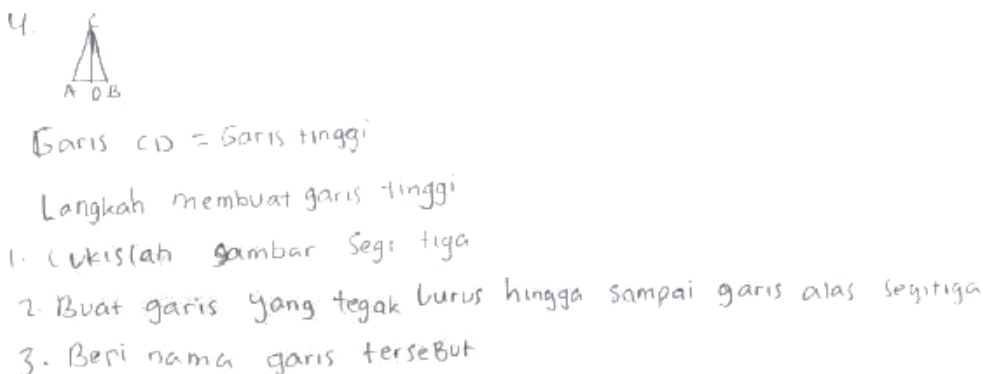 4.
C
A D B
Garis CD = Garis tinggi
Langkah membuat garis tinggi
1. Lukislah gambar Segi tiga
2. Buat garis yang tegak lurus hingga sampai garis alas segitiga
3. Beri nama garis terseBut